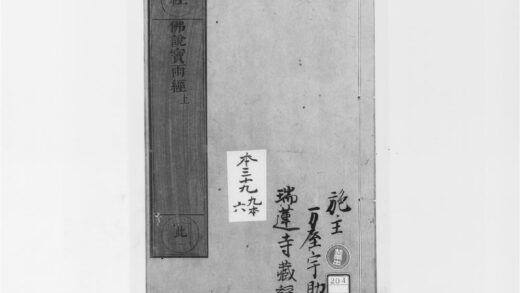 經
佛說寶雨經上
此
本三十九 九本
六
施主
万屋宇助
瑞蓮寺藏
204